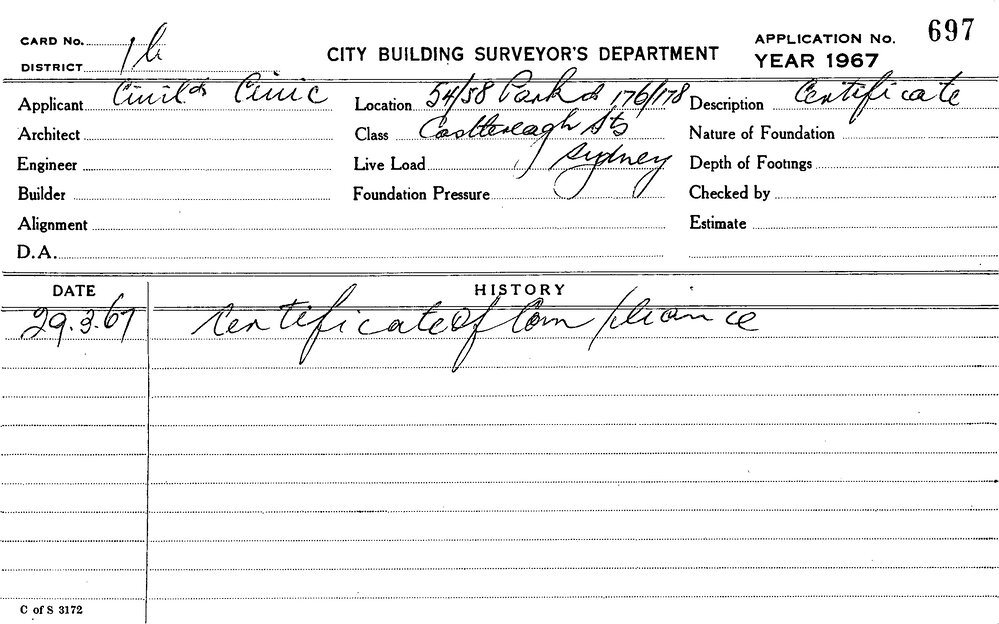 CARD No.
DISTRICT 1b
CITY BUILDING SURVEYOR'S DEPARTMENT
APPLICATION No. 697
YEAR 1967
Applicant Civil & Civic
Location 54/58 Park & 176/178
Description Certificate
Architect
Class Castlereagh Sts
Nature of Foundation
Engineer
Live Load Sydney
Depth of Footings
Builder
Foundation Pressure
Checked by
Alignment
Estimate
D.A.
DATE HISTORY
29.3.67 Certificate of Compliance
C of S 3172